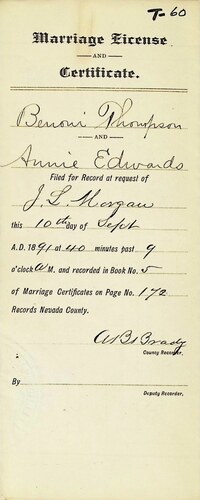 T-60
Marriage License
AND
Certificate.
Benoni Thompson
AND
Annie Edwards
Filed for Record at request of
J. L. Morgan
this 10th day of Sept
A.D. 1891 at 40 minutes past 9
o'clock A M. and recorded in Book No. 5
of Marriage Certificates on Page No. 172
Records Nevada County.
A B Brady
County Recorder.
By
Deputy Recorder.